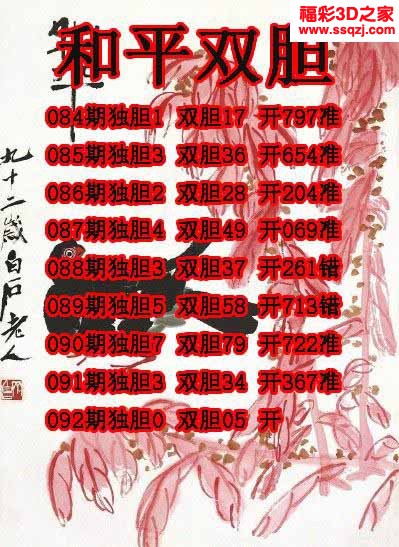 福彩3D之家
www.ssqzj.com
和平双胆
084期独胆1 双胆17 开797准
085期独胆3 双胆36 开654准
086期独胆2 双胆28 开204准
087期独胆4 双胆49 开069准
088期独胆3 双胆37 开261错
089期独胆5 双胆58 开713错
090期独胆7 双胆79 开722准
091期独胆3 双胆34 开367准
092期独胆0 双胆05 开
九十二岁白石老人